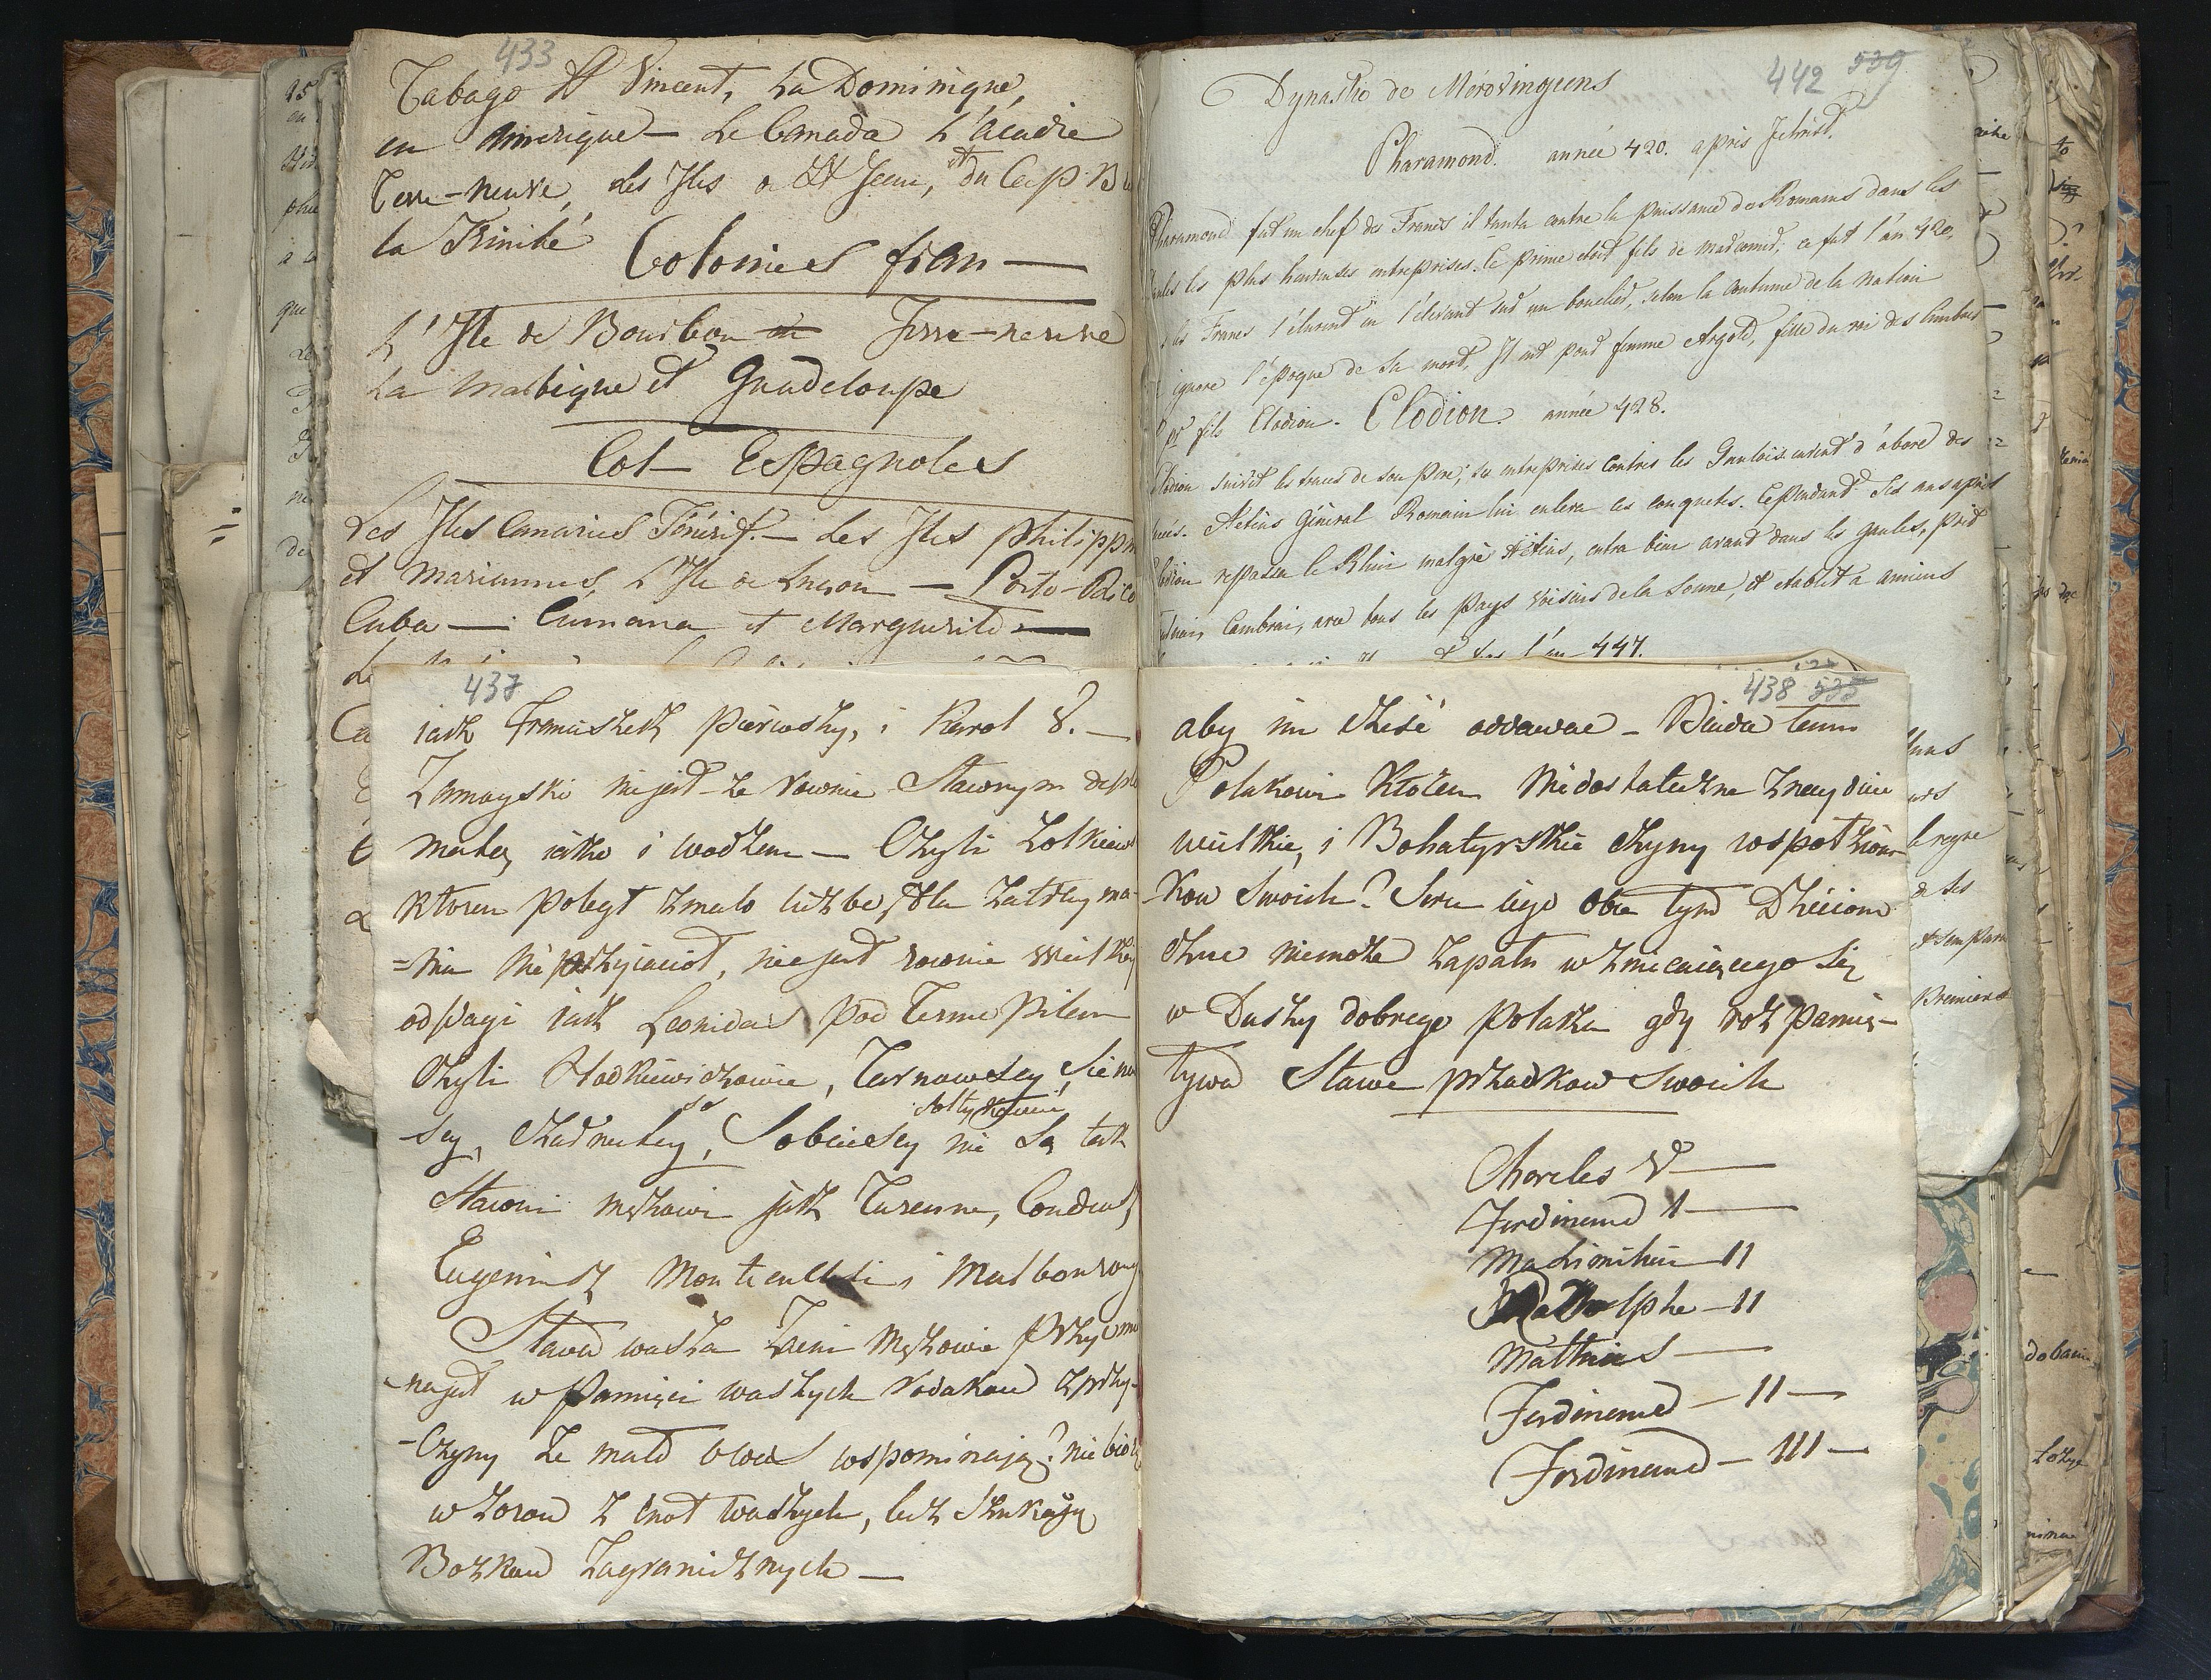 433
Tabago St Vincent, La Dominique,
en Amerique — Le Canada L'acadie
Terre-neuve, les Iles de St Jean, et du Cap B
la Trinité
Colonies fran —
L'Ile de Bourbon Terre-neuve
La Martinique et Guadeloupe
Col — Espagnoles
Les Iles Canaries Ténérif. — les Iles philippin
et Mariannes, L'Ile de Luçon — Porto-Rico
Cuba — Cumana et Marguerite —
442 539
Dynastie de Mérovingiens
Pharamond. année 420. après J Christ.
Pharamond fut un chef des Francs il tenta contre la puissance des Romains dans les
Gaules les plus heureuses entreprises. Ce prince etoit fils de Marcomir; ce fut l'an 420,
les Francs l'élurent en l'élevant sur un bouclier, selon la coutume de la nation
ignore l'époque de sa mort, Il eut pour femme Argote, fille du roi des Cimbres
pr fils Clodion. Clodion. année 428.
Clodion suivit les traces de son père; ses entreprises contres les Gaulois eurent d'abord des
Aetius Général Romain lui enleva ces conquetes. Cependant Six ans après
Clodion repassa le Rhin malgré Aétius, entra bien avant dans les gaules, prit
Cambrai, avec tous les pays voisins de la Somme, et etablit a amiens
l'an 447.
437
iack Franciszek pierwszy, i Karol 8. —
Zamoyski niejest-ze rownie Sławnym deplo
mate, iako i wodzem — Czyli Zolkiew
ktoren poległ zmało liczbe, dla zatrzyma
=nia nieprzyiaciół, niejest rownie wielkiej
odwagi iack Leonidas pod Termopilem
Czyli Chodkiewiczowie, Tarnowscy, Sienia
scy, Czarnieccy, Sobiescy Sołtykowie nie są tak
Sławni męzowie jack Turenne, Condeus,
Eugeniusz Montecuculi i Malbouroug
Sława wasza Zacni Męzowie przypomi
-najest w Pamięci waszych rodakow zprzy-
-czyny ze mało o was wspominają? nie biorą
wzorow z cnot waszych, lecz szukają
Bozkow Zagranicznych —
438 535
aby im cześć oddawac — Biada temu
Polakowi Ktoren Niedostateczne znayduie
wielkie, i Bohatyrskie czyny wspołziom
-kow Swoich? Serce iego obce tym Dzieiom
czuc niemoze zapału wzniecaiącego się
w Duszy dobrego Polaka gdy rozpamię-
tywa Sławe przodkow Swoich
Charles V —
Ferdinand I —
Maximilien — II
Rodolphe — II
Matthias —
Ferdinand — II —
Ferdinand — III —